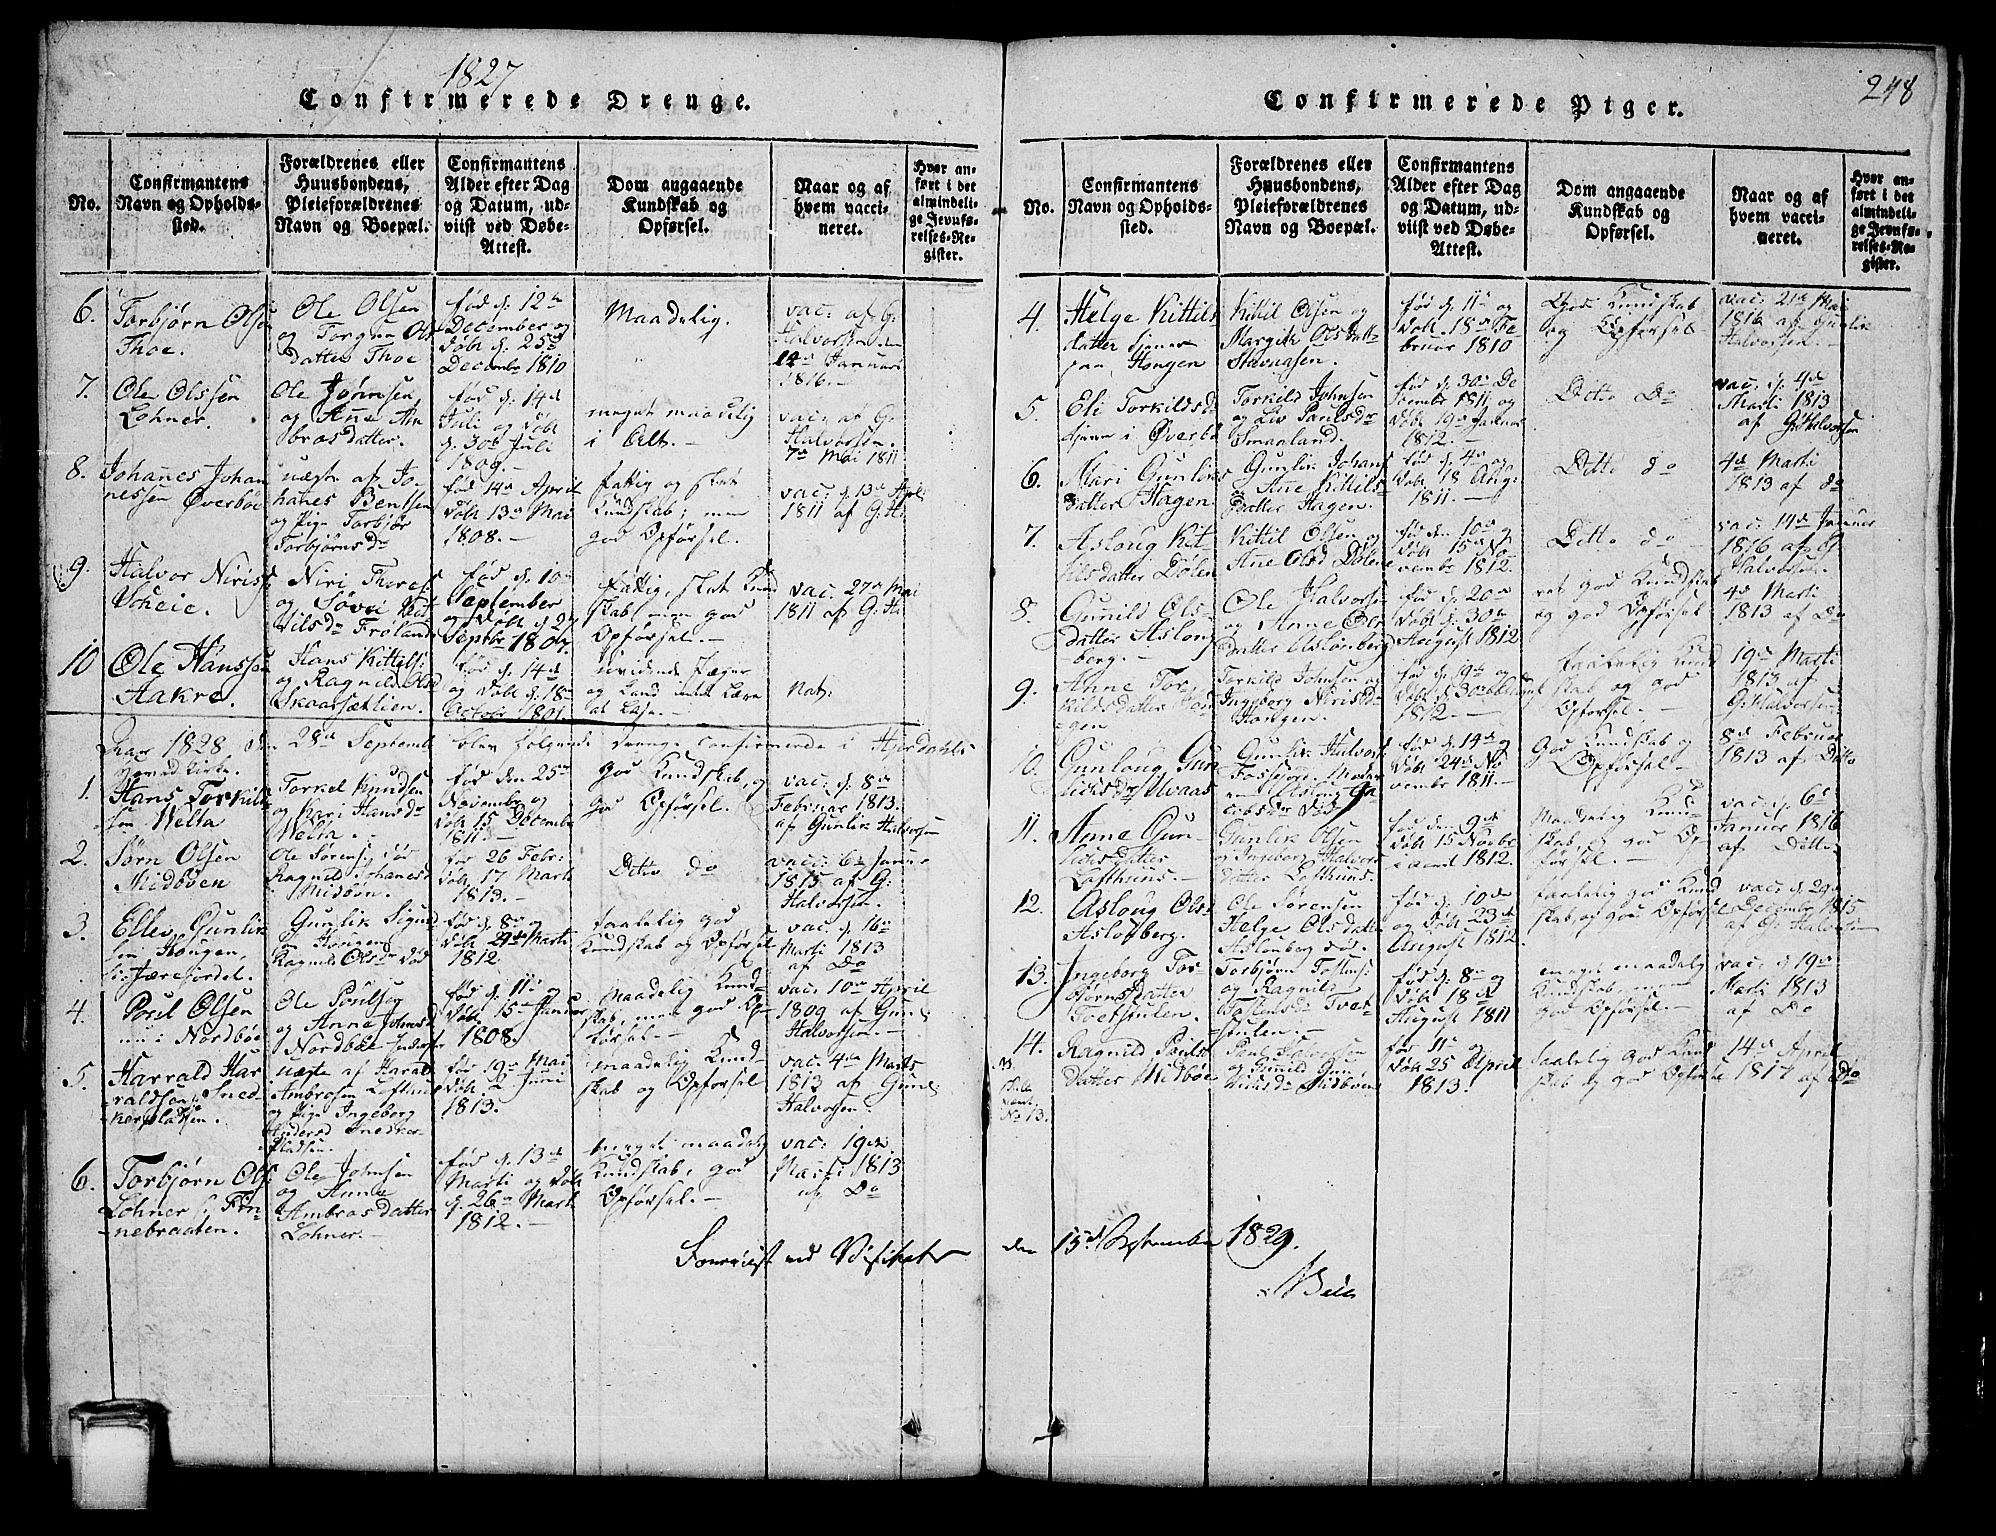 1827
Confirmerede Drenge.
No.
Confirmantens
Navn og Opholds-
sted.
Forældrenes eller
Huusbondens,
Pleieforældrenes
Navn og Boepæl.
Confirmantens
Alder efter Dag
og Datum, ud-
viist ved Døbe-
Attest.
Dom angaaende
Kundskab og
Opførsel.
Naar og af
hvem vacci-
neret.
Hvor an-
ført i det
almindeli-
ge Jevnfø-
relses-Re-
gister.
6.
Torbjørn Olsen
Thoe.
Ole Olsen
og Torgun Ols
datter Thoe
fød d. 12te
December og
døbt d. 25de
Decembr 1810
Maadelig.
vac: af G:
Halvorsen den
14de Januar
1816.-
7.
Ole Olssen
Lohner.
Ole Johnsen,
og Anne Am
brosdatter.
fød d. 14de
Juli og døbt
d. 30te Juli
1809.-
meget maadelig
i Alt.-
vac: af G:
Halvorsen.
7de Mai 1811
8.
Johannes Johan
nessen Øverbøe
uægte af Jo-
hanes Bentsen
og Pige Torbjør
Torbjørnsdr
fød 14de April
døbt 13de Mai
1808.-
fattig og slet
Kundskab; men
god Opførsel.
vac: d. 13de Apl:
1811 af G:H:
9.
Halvor Niriss
Scheie.
Niri Theres
og Søvei Kit
tilsdr Froland
fød d. 10de
September
og døbt d. 27
Septbr 1807.
fattig, slet Kund
skab men god
Opførsel.-
vac: 27de Mai
1811 af G:H:
10
Ole Hanssen
Aakre.
Hans Kittils:
og Ragnild Olsd
Skaarsætlien.
fød d. 14de
og døbt d. 18de
Octobr 1801.
og Land
at Læse.-
Nat:
Aar 1828, den 28de Septembr blev følgende Drenge confirmerede i Hjerdahls
Hoved Kirke.
1.
Hans Torkild
sen Welta
Torkel Knudsen
og Kari Hansdr
Welta.-
fød den 25de
Novembr og
døbt 15 Decembr
1811.-
God Kundskab, og
god Opførsel.
vac: d. 8de
Februar 1813.
af Gunlik Halvorsen
2.
Sørn Olsen
Midbøen
Ole Sørensen
Ragnild Johanesd
i Midbøn.
fød 26 Febr:
døbt 17 Marti
1813.-
Ditto do
vac: 6te Januar
1815 af G:
Halvorsen.
3.
Ellev Gunlik
sen Hougen,
Gunlik Sigurd
sen Hougen
Ragnild Olsdr død
fød d. 8de og
døbt 29de Marti
1812
taalelig god
Kundskab og Opførsel
vac: d. 16de
Marti 1813
af Do
4.
Poul Olsen
nu i Nordbøe
Ole Poulsen
og Anne Johnsd
i Nordbøe
fød d. 11te og
døbt 15de Januar
1808.
maadelig Kund
skab, men god Op-
førsel.-
vac: 10de April
1809 af Gun:
Halvorsen.-
5.
Harrald Har
raldsen Sned
kerpladsen.
uægte af Harald
Ambrosen Lofthuus
og Pige Ingeborg
Andersd Snedker
Pladsen.
fød 19de Mai
døbt 8 Juni
1813.-
maadelig Kund
skab og Opførsel
vac: 4de Marts
1813 af Gun:
Halvorsen.
6.
Torbjørn Ols:
Lohner i Fin-
nebraaten.
Ole Johnsen
og Anne
Ambrosdatter
Lohner.-
fød d. 13de
Marti og døbt
d. 26de Marti
1812.-
meget maadelig
Kundskab, god
Opførsel.-
vac: 19de
Marti 1813
af Do
Foreviist ved Visitats
248
Confirmerede Piger.
No.
Confirmantens
Navn og Opholds-
sted.
Forældrenes eller
Huusbondens,
Pleieforældrenes
Navn og Boepæl.
Confirmantens
Alder efter Dag
og Datum, ud-
viist ved Døbe-
Attest.
Dom angaaende
Kundskab og
Opførsel.
Naar og af
hvem vacci-
neret.
Hvor an-
ført i det
almindeli-
ge Jevnfø-
relses-Re-
gister.
4.
Helge Kittils
datter tjener
paa Hougen
Kittil Olsen og
Margith Olsdatter
fød d. 11te og
døbt 18de Fe
bruar 1810
god Kundskab
og Opførsel
vac: 21de Mai
1816 af Gunlik
Halvorsen.-
5.
Eli Torkildsd
tjener i Øverbø
Torkild Johnsen
og Liv Paulsdr
Smaaland.
fød d. 30te De
cembr 1811 og
døbt 19de Januar
1812.-
Ditto Do
vac: d. 4de
Marti 1813
af G:Halvorsen
6.
Mari Gunliks
datter Hagen
Gunlik Johans
og Ane Kittils-
datter Hagen.
fød d. 4de og
døbt 18 Aug:
1811.-
Ditto do
4de Marti
1813 af do
7.
Asloug Kit-
tilsdatter Dølen
Kittil Olsen og
Ane Olsd Dølene
fød den 10de og
døbt 15de No-
vembr 1812.
Ditto do
vac: 14de Januar
1816 af G:
Halvorsen.-
8.
Gunild Ols-
datter Aslong
berg.-
Ole Halvorsen
og Anne Ols
datter Aslonberg
fød d. 20de
døbt d. 30te
August 1812
ret god Kundskab
og god Opførsel
4de Marti
1813 af Do
9.
Anne Tor
kildsdatter Hou
gen
Torkild Johnsen og
Ingeborg Nirisdr
Hougen.
fød d. 19de og
døbt d. 30te
1812.-
taalelig Kund
skab og god
Opførsel.-
19de Marti
1813 af
G:Halvorsen
10.
Gunloug Gun
liksdr Uvaas
Gunlik Halvors
Fossejore. Moder
en Aslong Ja
cobsdr død
fød d. 14de og
døbt 24de No
vembr 1811.-
God Kundskab og
Opførsel.-
8de Februar
1813 af Ditto
11.
Anne Gun-
liksdatter
Lofthuus.-
Gunlik Olsen
og Ingeborg Halvors
datter Lofthuus.
fød den 9de
døbt 15 Novbr
i aaret 1812.
Maadelig Kund-
skab, og god Op-
førsel.-
vac: d. 6te
Januar 1816
af Ditto
12.
Aslong Ols:
Aslonberg.
Ole Sørensen
Helge Olsdatter
Aslonberg død.
fød d. 10de
og døbt 23de
August 1812.
taalelig god Kund
skab og god Opførsel
vac: d. 29de
Decembr 1815
af G: Halvorsen
13.
Ingeborg Tor-
bjørnsdatter
Tvetstulen.
Torbjørn Tostens:
og Ragnild
Tostensdr Tvet-
stulen.-
fød d. 8de og
døbt 18de
August 1811
meget maadelig
Kundskab, men
god Opførsel.-
vac: d. 19de
Marti 1813
af Do
14.
Ragnild Pauls
datter Midbøe
Paul Halvorsen
og Gunild Gun
liksdr Midbøen
fød 11te og
døbt 25 April
1813.-
taalelig god Kund
skab og god Opførsel
14de April
1817 af Do
No 13.
den 15de September 1829.